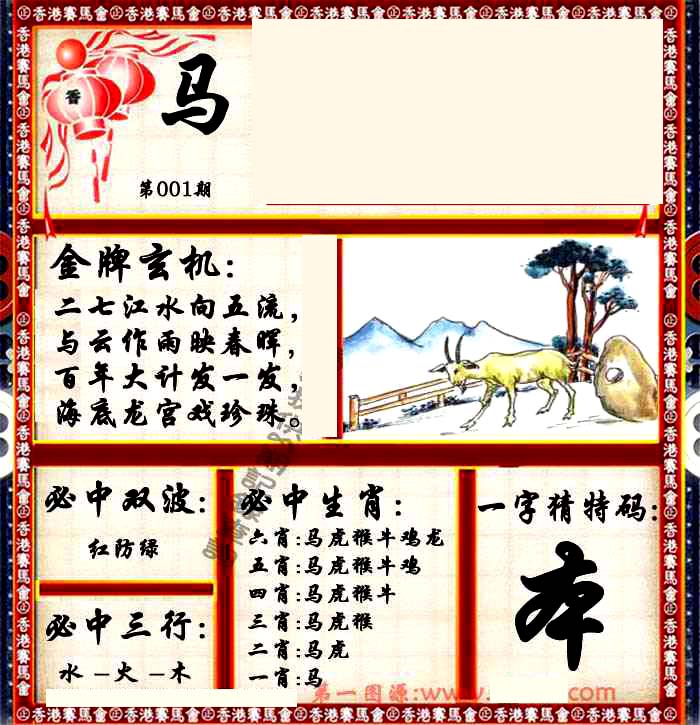 ㊣香港赛馬會㊣香港赛馬會㊣香港赛馬會㊣香港赛馬會㊣香港赛馬會㊣香港赛馬會㊣
香
马
第001期
金牌玄机:
二七江水向五流,
与云作雨映春晖,
百年大计发一发,
海底龙宫戏珍珠。
必中双波:
红防绿
必中三行:
水–火–木
必中生肖:
六肖:马虎猴牛鸡龙
五肖:马虎猴牛鸡
四肖:马虎猴牛
三肖:马虎猴
二肖:马虎
一肖:马
一字猜特码:
本
第一图源:www. .com